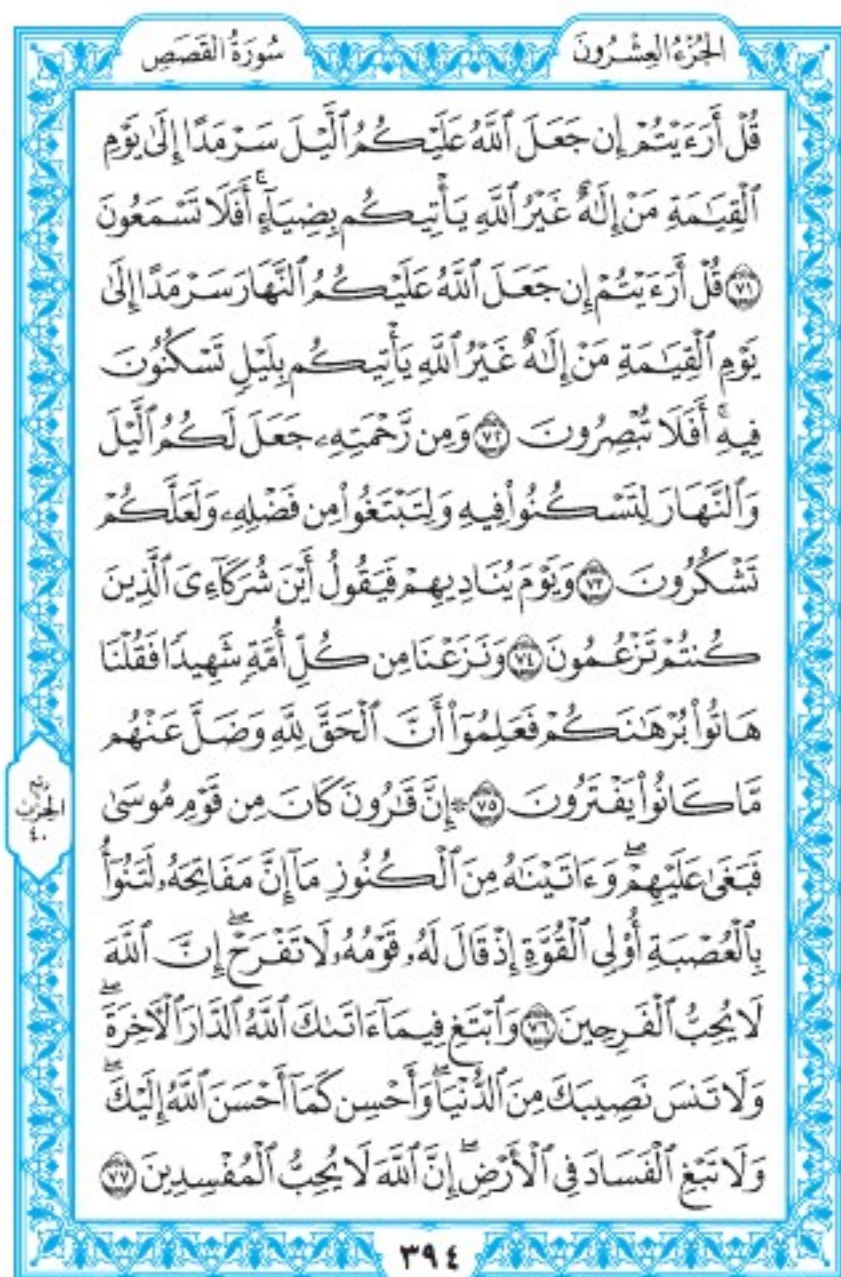 الجُزْءُ العِشْرُونَ
سُورَةُ القَصَصِ
قُلْ أَرَءَيْتُمْ إِن جَعَلَ ٱللَّهُ عَلَيْكُمُ ٱلَّيْلَ سَرْمَدًا إِلَىٰ يَوْمِ
ٱلْقِيَـٰمَةِ مَنْ إِلَـٰهٌ غَيْرُ ٱللَّهِ يَأْتِيكُم بِضِيَآءٍۚ أَفَلَا تَسْمَعُونَ
٧١ قُلْ أَرَءَيْتُمْ إِن جَعَلَ ٱللَّهُ عَلَيْكُمُ ٱلنَّهَارَ سَرْمَدًا إِلَىٰ
يَوْمِ ٱلْقِيَـٰمَةِ مَنْ إِلَـٰهٌ غَيْرُ ٱللَّهِ يَأْتِيكُم بِلَيْلٍ تَسْكُنُونَ
فِيهِۚ أَفَلَا تُبْصِرُونَ ٧٢ وَمِن رَّحْمَتِهِۦ جَعَلَ لَكُمُ ٱلَّيْلَ
وَٱلنَّهَارَ لِتَسْكُنُوا۟ فِيهِ وَلِتَبْتَغُوا۟ مِن فَضْلِهِۦ وَلَعَلَّكُمْ
تَشْكُرُونَ ٧٣ وَيَوْمَ يُنَادِيهِمْ فَيَقُولُ أَيْنَ شُرَكَآءِىَ ٱلَّذِينَ
كُنتُمْ تَزْعُمُونَ ٧٤ وَنَزَعْنَا مِن كُلِّ أُمَّةٍ شَهِيدًا فَقُلْنَا
هَاتُوا۟ بُرْهَـٰنَكُمْ فَعَلِمُوٓا۟ أَنَّ ٱلْحَقَّ لِلَّهِ وَضَلَّ عَنْهُم
مَّا كَانُوا۟ يَفْتَرُونَ ٧٥ ۞ إِنَّ قَـٰرُونَ كَانَ مِن قَوْمِ مُوسَىٰ
فَبَغَىٰ عَلَيْهِمْۖ وَءَاتَيْنَـٰهُ مِنَ ٱلْكُنُوزِ مَآ إِنَّ مَفَاتِحَهُۥ لَتَنُوٓأُ
بِٱلْعُصْبَةِ أُو۟لِى ٱلْقُوَّةِ إِذْ قَالَ لَهُۥ قَوْمُهُۥ لَا تَفْرَحْۖ إِنَّ ٱللَّهَ
لَا يُحِبُّ ٱلْفَرِحِينَ ٧٦ وَٱبْتَغِ فِيمَآ ءَاتَىٰكَ ٱللَّهُ ٱلدَّارَ ٱلْـَٔاخِرَةَۖ
وَلَا تَنسَ نَصِيبَكَ مِنَ ٱلدُّنْيَاۖ وَأَحْسِن كَمَآ أَحْسَنَ ٱللَّهُ إِلَيْكَۖ
وَلَا تَبْغِ ٱلْفَسَادَ فِى ٱلْأَرْضِۖ إِنَّ ٱللَّهَ لَا يُحِبُّ ٱلْمُفْسِدِينَ ٧٧
ربع
الحزب
٤٠
٣٩٤